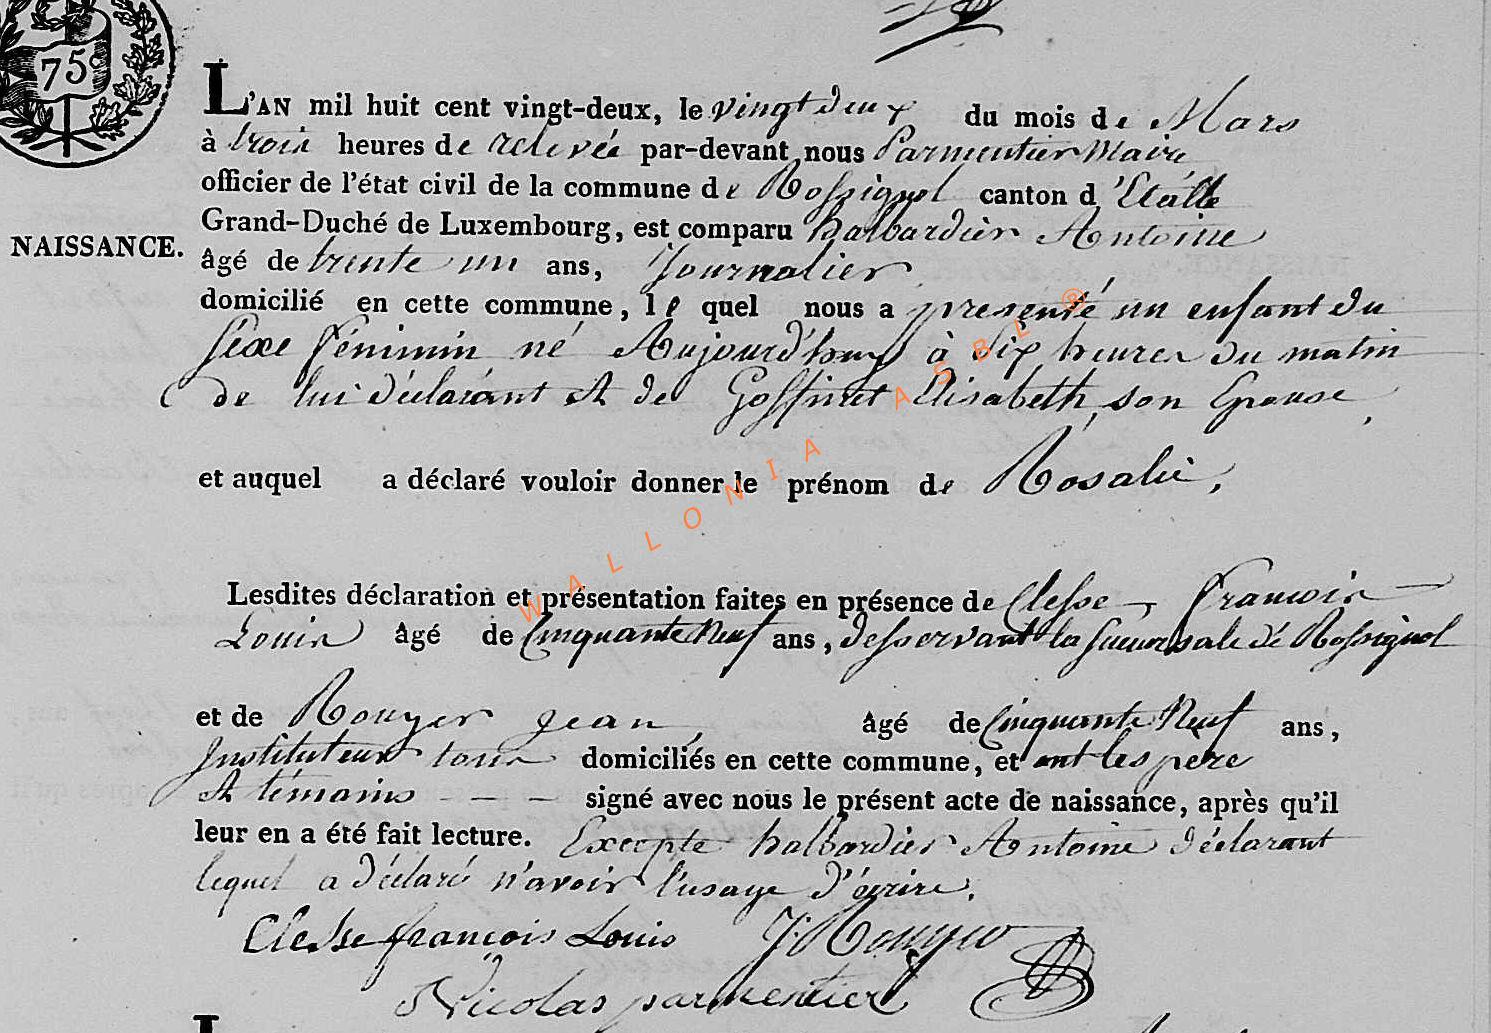 75c
L'AN mil huit cent vingt-deux, le vingt deux du mois de Mars
à trois heures de relevée par-devant nous Parmentier Maire
officier de l'état civil de la commune de Rossignol canton d'Etalle
NAISSANCE.
Grand-Duché de Luxembourg, est comparu halbardier Antoine
âgé de trente un ans, Journalier
domicilié en cette commune, lequel nous a presenté un enfant du
Sexe féminin né Aujourd'huy à dix heures du matin
de lui déclarant et de Goffinet Elisabeth son Epouse,
et auquel a déclaré vouloir donner le prénom de Rosalie,
WALLONIA ASBL ®
Lesdites déclaration et présentation faites en présence de Clesse francois
Louis âgé de Cinquante Neuf ans, desservant la Sucursale de Rossignol
et de Rouyer jean, âgé de Cinquante Neuf ans,
Instituteur tous domiciliés en cette commune, et ont les pere
et témoins — — — signé avec nous le présent acte de naissance, après qu'il
leur en a été fait lecture. Excepte halbardier Antoine déclarant
lequel a déclaré n'avoir l'usage d'écrire.
Clesse françois Louis J: Rouyer
Nicolas parmentier
L